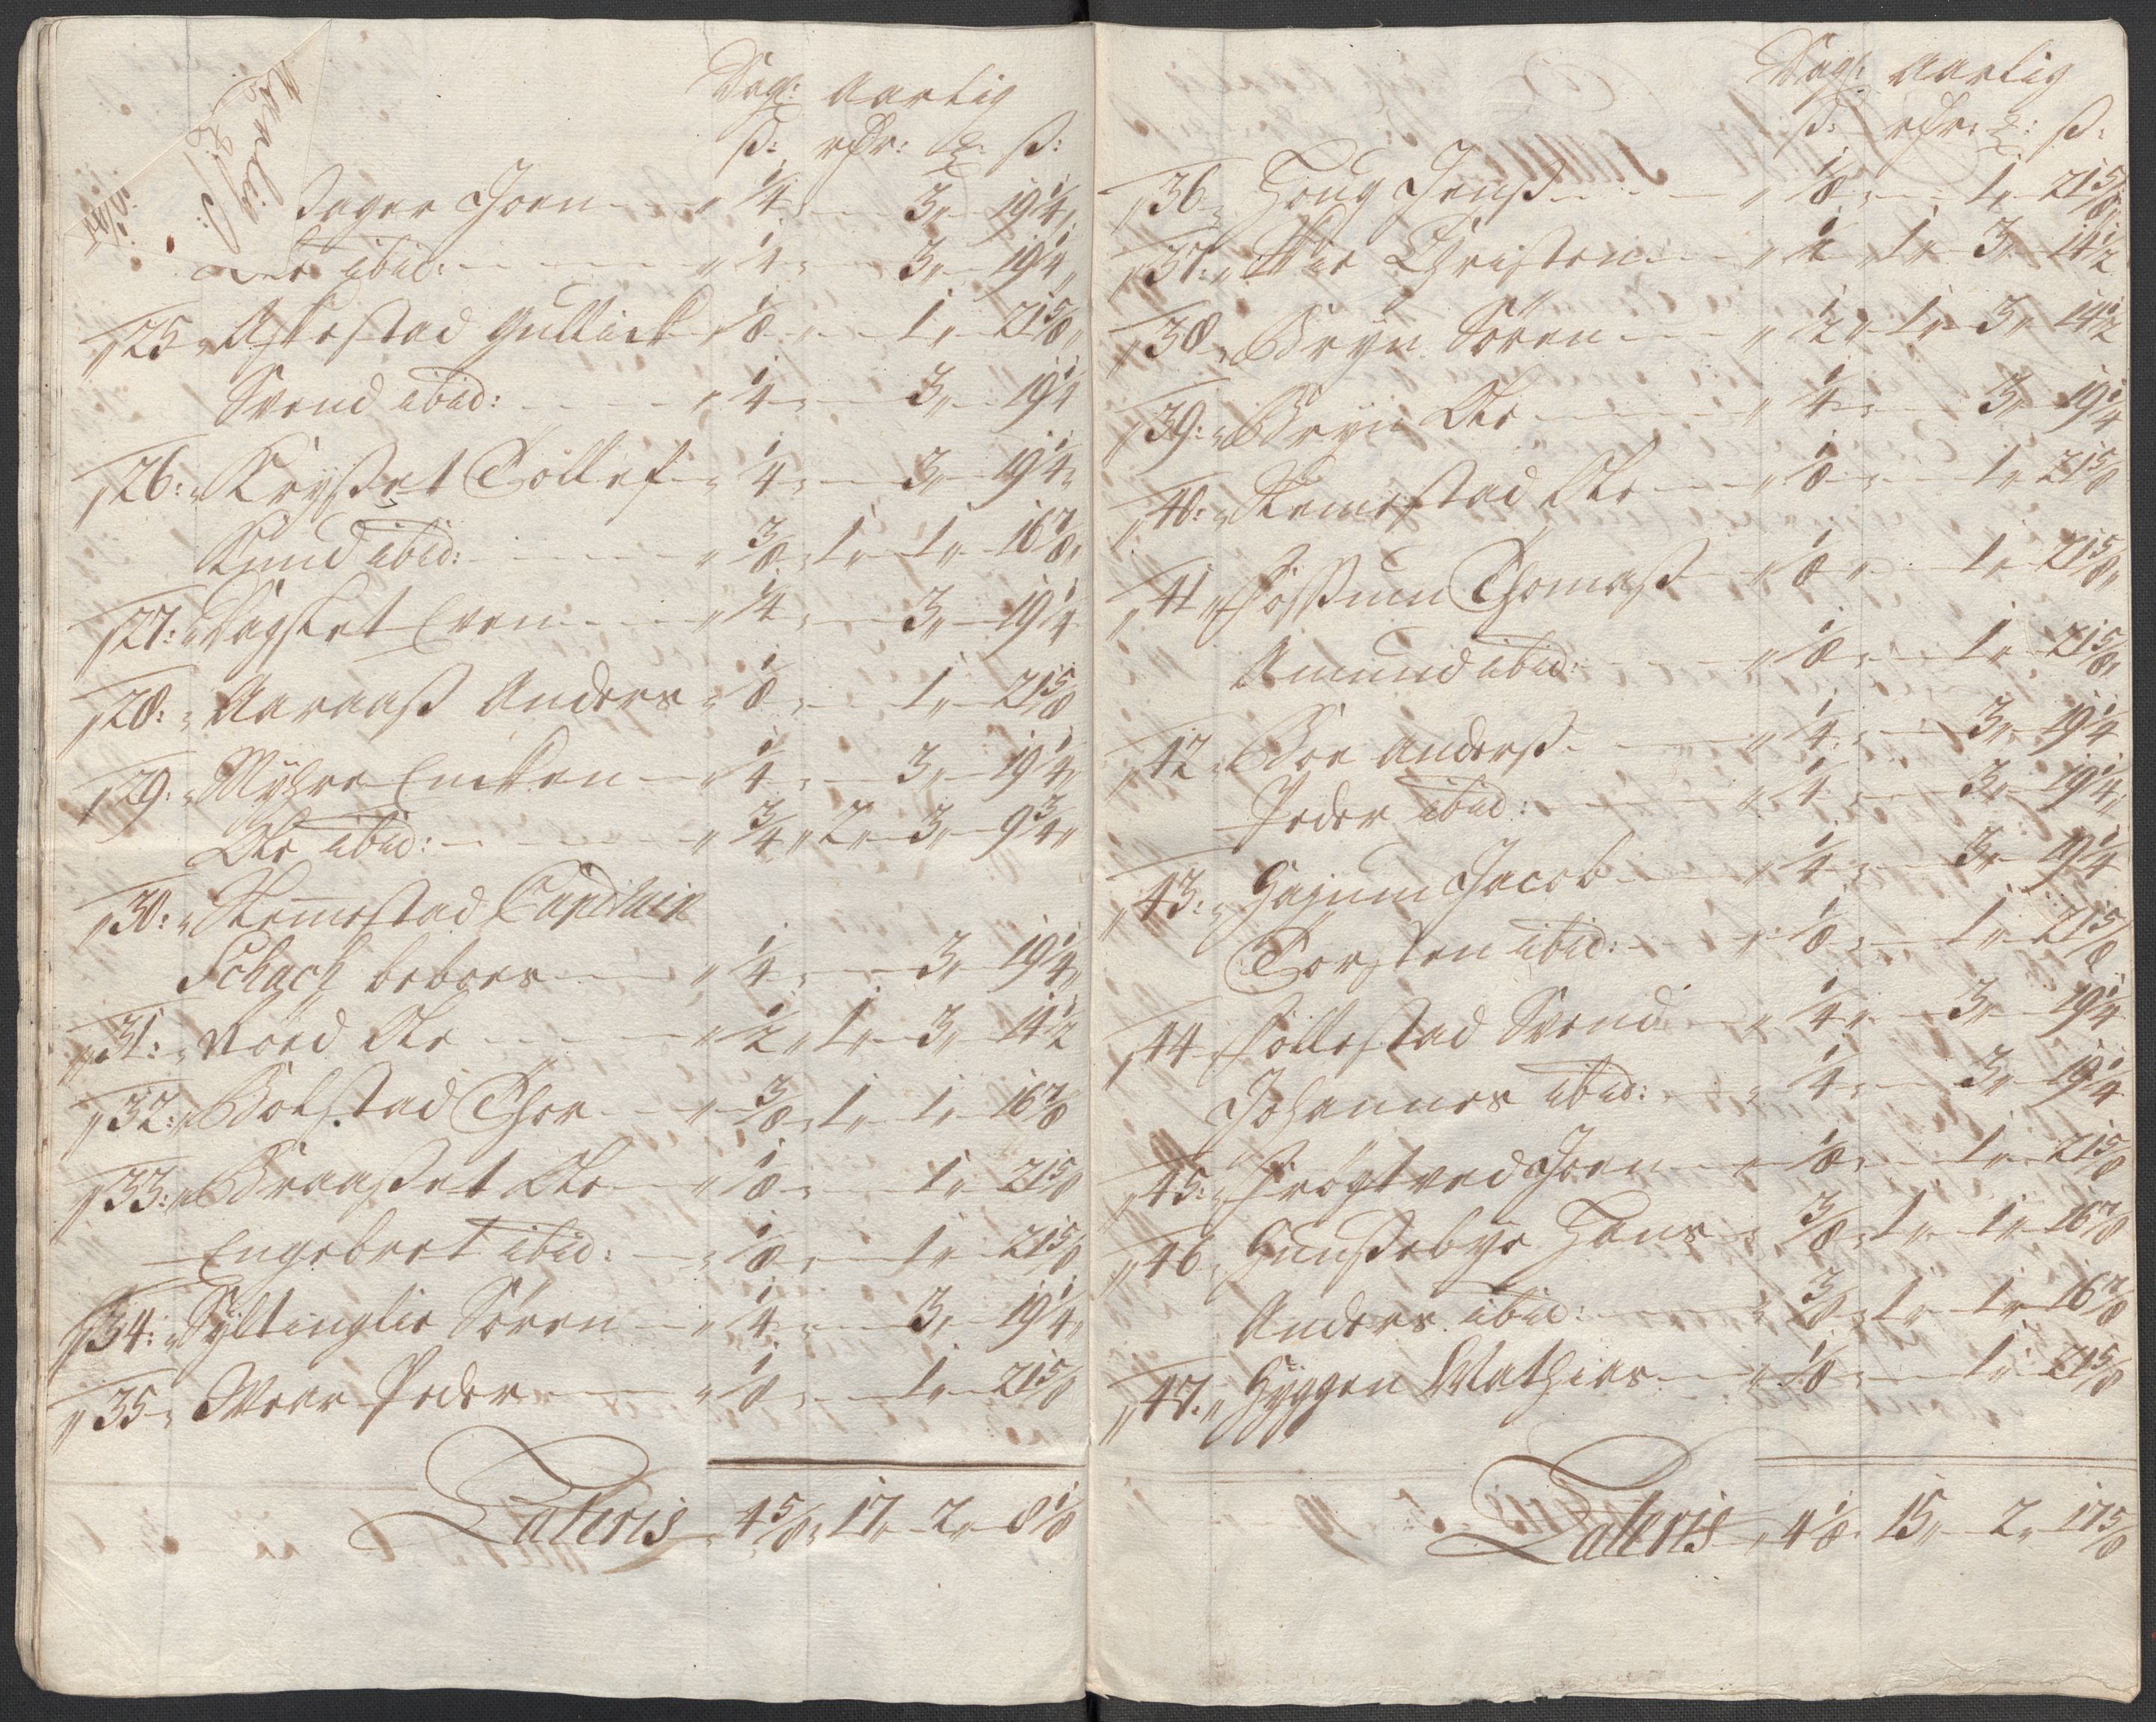 Dagl: Aarlig
ß: rdr: ß:
Jager Joen — 1/4 — 3 — 19 1/4
Ole ibid: — 1/4 — 3 — 19 1/4
25 Askestad Gullich — 1/8 — 1 — 21 5/8
Svend ibid: — 1/4 — 3 — 19 1/4
26: Krysset Tollef — 1/4 — 3 — 19 1/4
Knud ibid: — 3/8 — 1 — 1 — 16 7/8
27: Dagslet Even — 1/4 — 3 — 19 1/4
28: Aaraaß Anders — 1/8 — 1 — 21 5/8
29: Myhre Encken — 1/4 — 3 — 19 1/4
Ole ibid: — 3/4 — 2 — 3 — 9 3/4
30: Kemestad Capitain
Schach beboer — 1/4 — 3 — 19 1/4
31: Nöed Ole — 1/2 — 1 — 3 — 14 1/2
32: Bolstad Thor — 3/8 — 1 — 1 — 16 7/8
33: Braaßet Ole — 1/8 — 1 — 21 5/8
Engebret ibid: — 1/8 — 1 — 21 5/8
34: Syltinglie Sören — 1/4 — 3 — 19 1/4
35 Moer Peder — 1/8 — 1 — 21 5/8
Lateris 4 5/8 17 2 8 1/8
Dagl: Aarlig
ß: rdr: ß:
36 Houg Jenß — 1/8 — 1 — 21 5/8
37: Christen — 1/2 — 1 — 3 — 14 1/2
38 Bryn Sören — 1/2 — 1 — 3 — 14 1/2
39: Bryn Ole — 1/4 — 3 — 19 1/4
40: Kemestad Ole — 1/8 — 1 — 21 5/8
41 Fossum Thomaß — 1/8 — 1 — 21 5/8
Amund ibid: — 1/8 — 1 — 21 5/8
42 Böe Anderß — 1/4 — 3 — 19 1/4
Peder ibid: — 1/4 — 3 — 19 1/4
43: Hajum Jacob — 1/4 — 3 — 19 1/4
Torsten ibid: — 1/8 — 1 — 21 5/8
44 Föllestad Svend — 1/4 — 3 — 19 1/4
Johannes ibid: — 1/4 — 3 — 19 1/4
45: Frögtved Joen — 1/8 — 1 — 21 5/8
46 Gunßebye Hans — 3/8 — 1 — 1 — 16 7/8
Anders ibid: — 3/8 — 1 — 1 — 16 7/8
47: Hyggen Mathias — 1/8 — 1 — 21 5/8
Lateris 4 1/8 15 2 17 5/8